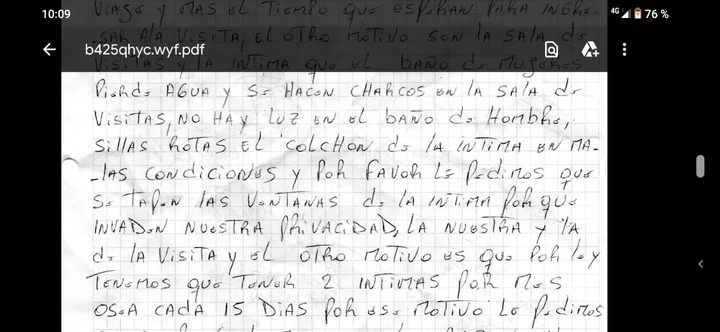 10:09 4G 76 %
VIAGE Y MAS EL TIEMPO QUE ESPERAN PARA INGRE-
SAR A LA VISITA, EL OTRO MOTIVO SON LA SALA de
b425qhyc.wyf.pdf
VISITAS Y LA INTIMA QUE EL BAÑO de MUJERES
PIERde AGUA Y Se HACEN CHARCOS EN LA SALA de
VISITAS, NO HAY LUZ EN EL BAÑO de HOMBRE,
SILLAS ROTAS EL COLCHON de LA INTIMA EN MA-
-LAS CONDICIONES Y POR FAVOR Le PedIMOS QUE
Se TAPeN LAS VeNTANAS de LA INTIMA POR QUE
INVADeN NUESTRA PRIVACIDAD, LA NUESTRA Y LA
de LA VISITA Y EL OTRO MOTIVO ES QUe POR LeY
TENEMOS QUe TENER 2 INTIMAS POR MES
OSeA CADA 15 DIAS POR ESe MOTIVO Le PedIMOS